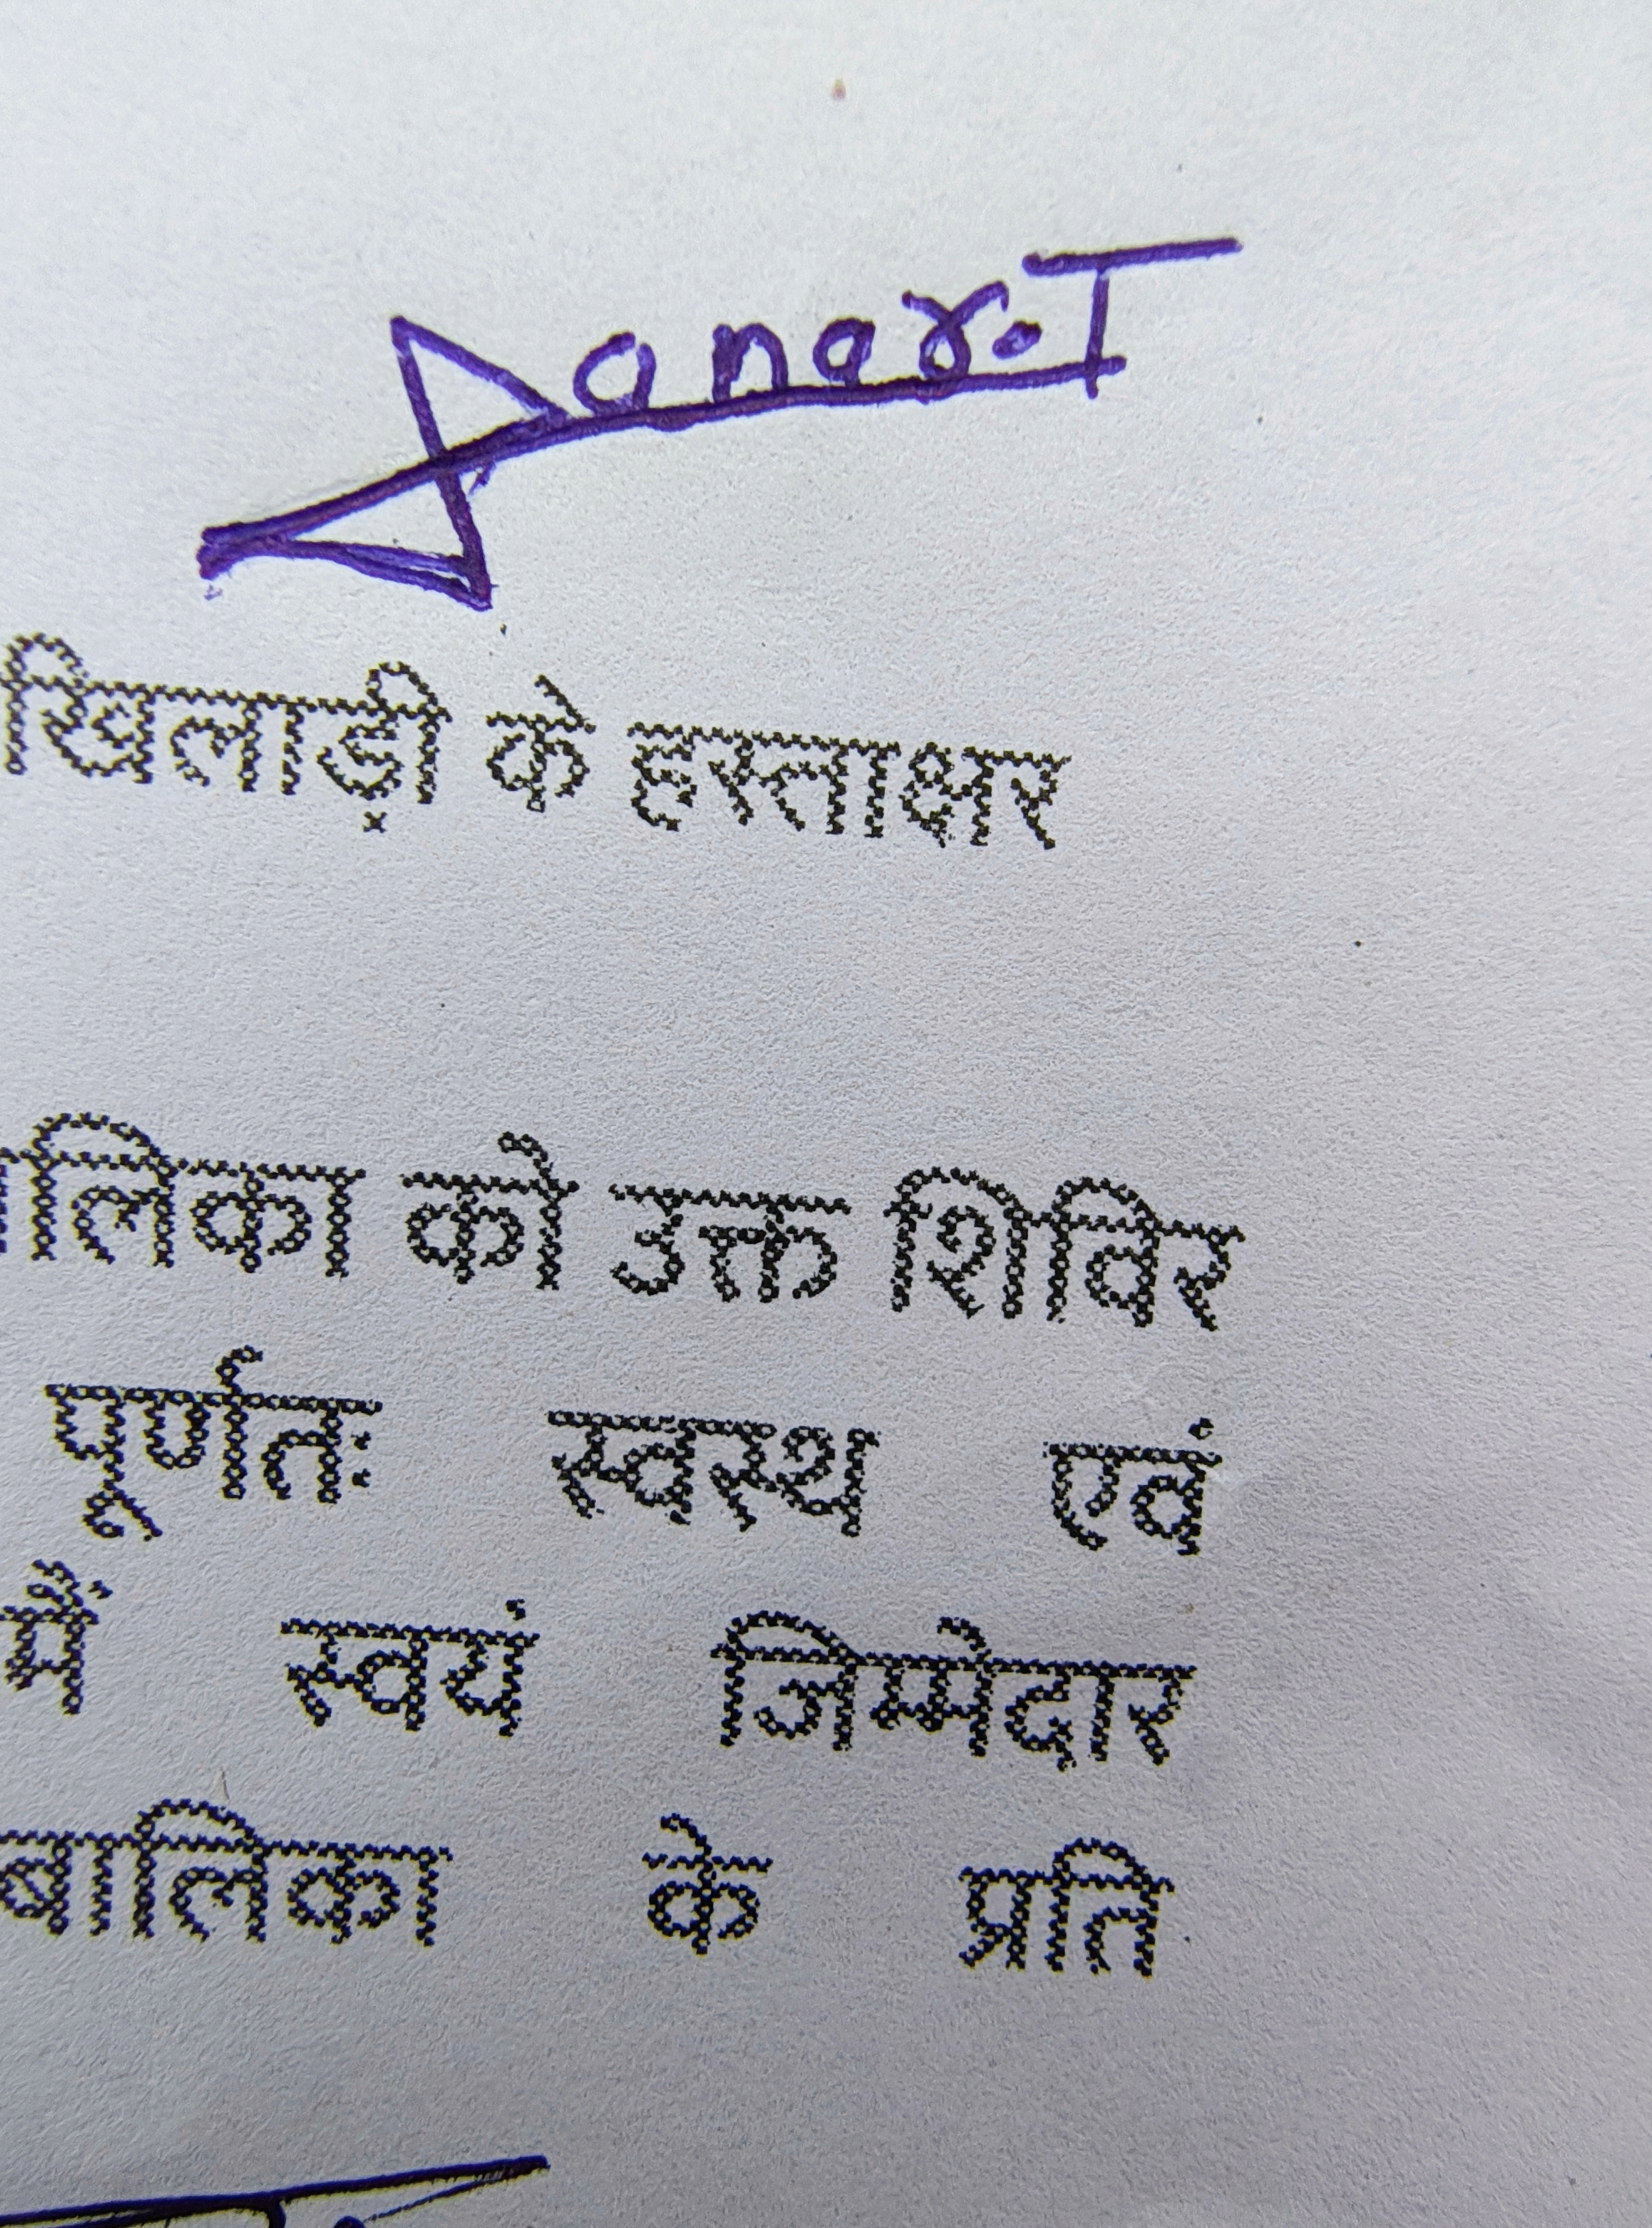 Sanar.T
खिलाड़ी के हस्ताक्षर
लिका को उक्त शिविर
पूर्णतः स्वस्थ एवं
में स्वयं जिम्मेदार
बालिका के प्रति